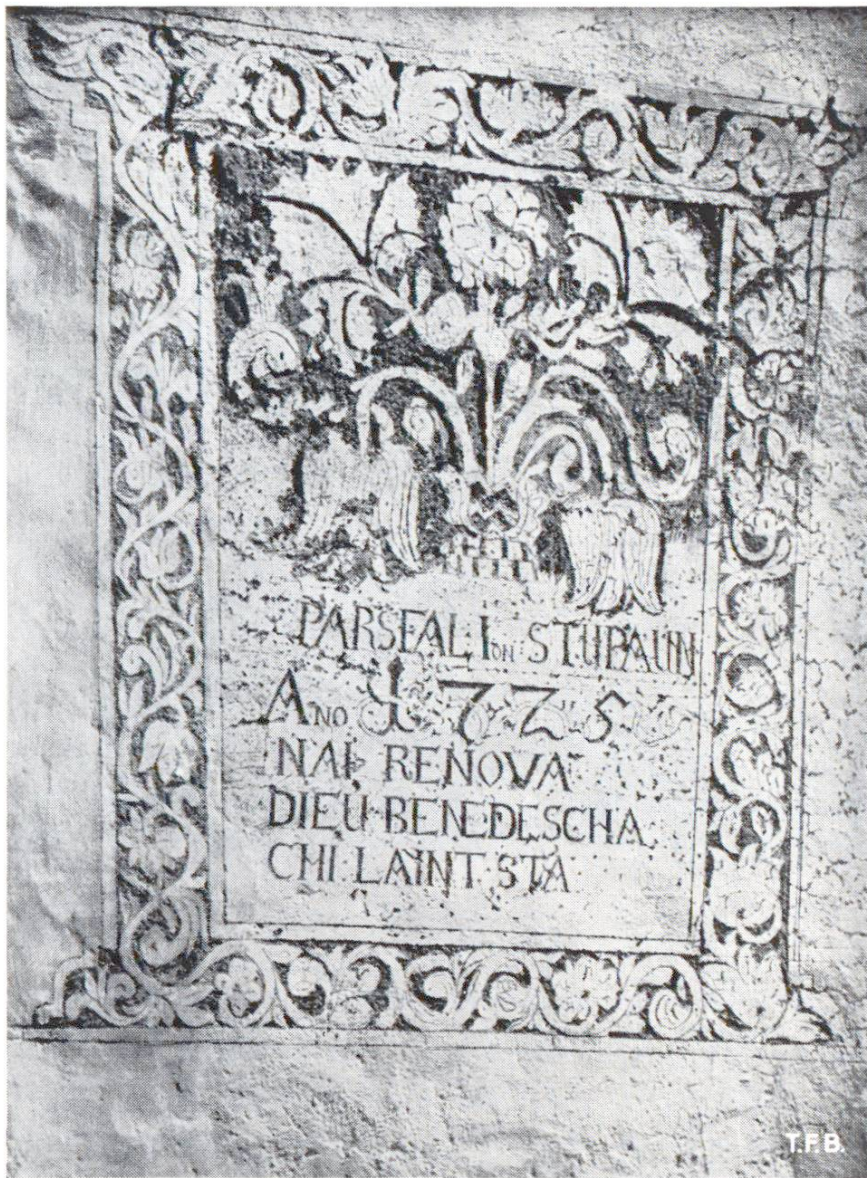 PARSEAL ION STUPAUN
ANO 1725
NAI RENOVA
DIEU BENEDESCHA
CHI LAINT STA
T.F.B.